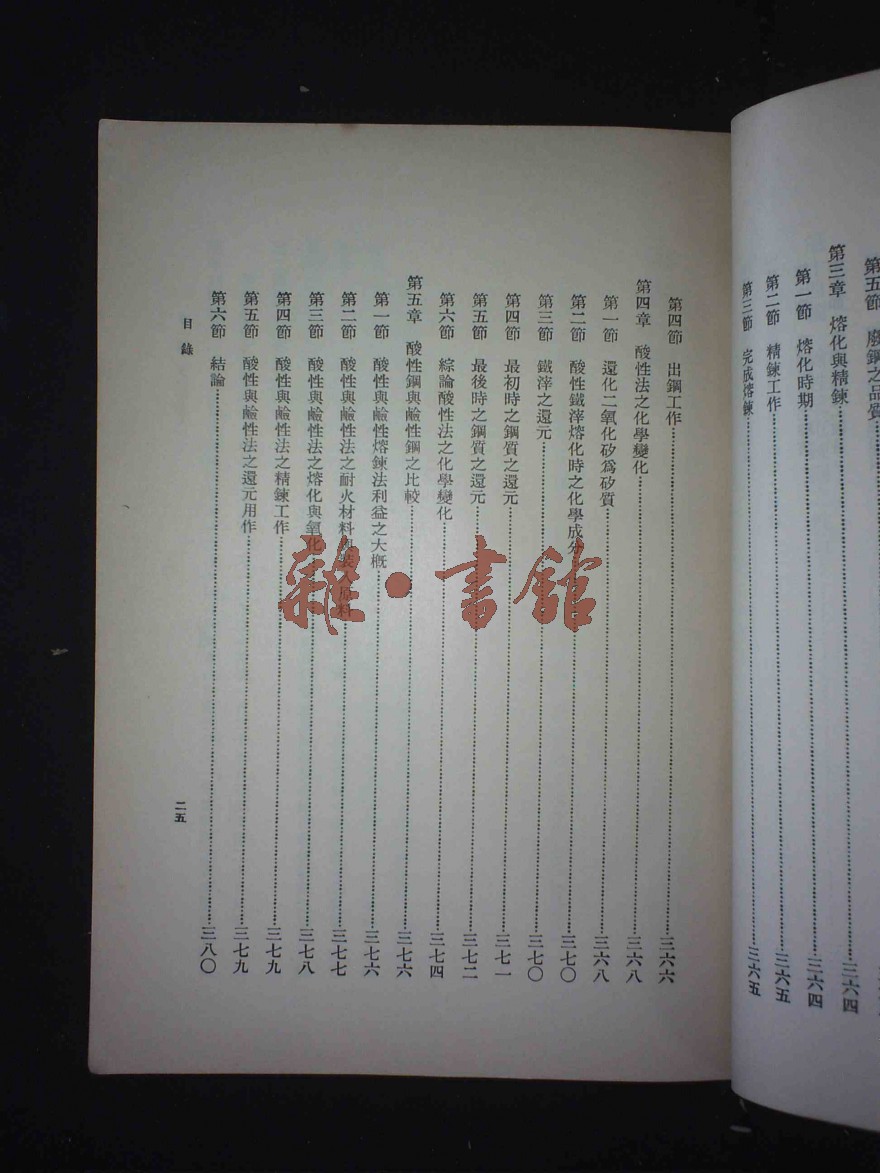 第五節 廢鋼之品質
第三章 熔化與精鍊……三六四
第一節 熔化時期……三六四
第二節 精鍊工作……三六五
第三節 完成熔鍊……三六五
第四節 出鋼工作……三六六
第四章 酸性法之化學變化……三六八
第一節 還化二氧化矽為矽質……三六八
第二節 酸性鐵滓熔化時之化學成分……三七〇
第三節 鐵滓之還元……三七〇
第四節 最初時之鋼質之還元……三七一
第五節 最後時之鋼質之還元……三七二
第六節 綜論酸性法之化學變化……三七四
第五章 酸性鋼與鹼性鋼之比較……三七六
第一節 酸性與鹼性熔鍊法利益之大概……三七六
第二節 酸性與鹼性法之耐火材料與裝入原料……三七七
第三節 酸性與鹼性法之熔化與氧化……三七八
第四節 酸性與鹼性法之精鍊工作……三七九
第五節 酸性與鹼性法之還元用作……三七九
第六節 結論……三八〇
目錄
二五
雜·書館